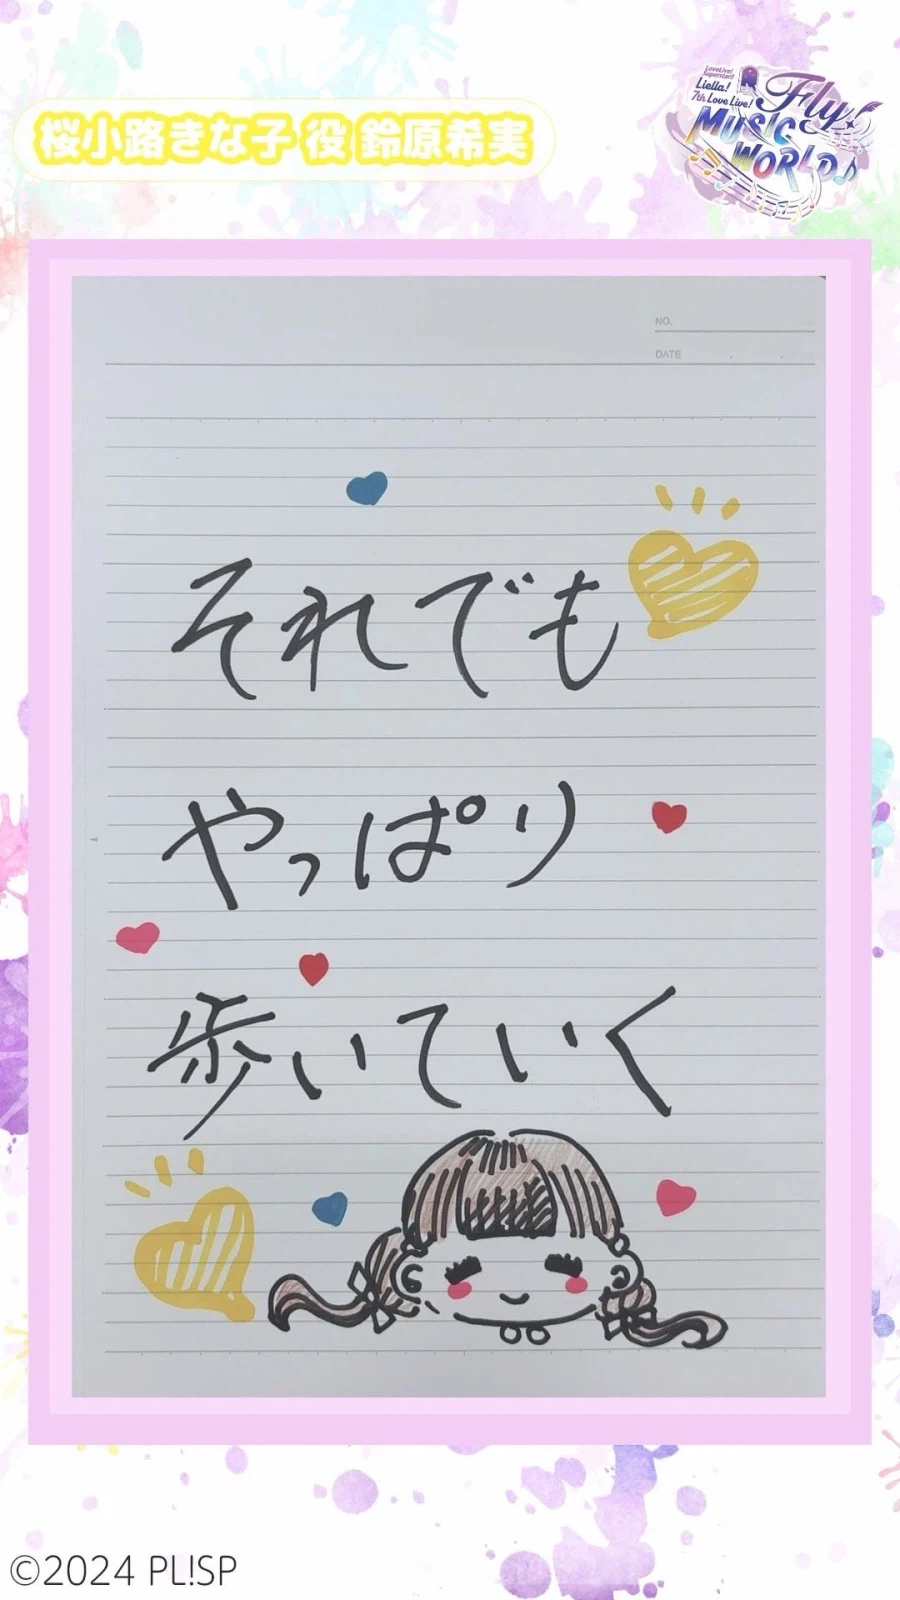 桜小路きな子 役 鈴原希実
LoveLive!
Superstar!!
Liella!
7th Love Live!
Fly!
MUSIC
WORLD♪
NO.
DATE . .
それでも
やっぱり
歩いていく
©2024 PL!SP